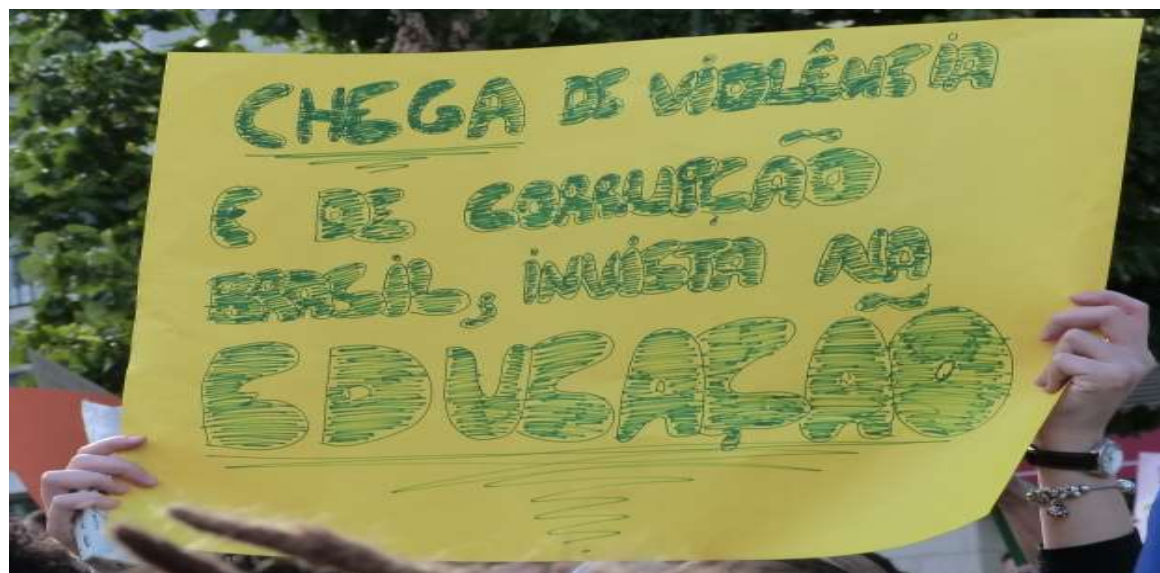 CHEGA DE VIOLÊNCIA
E DE CORRUPÇÃO
BRASIL, INVISTA NA
EDUCAÇÃO